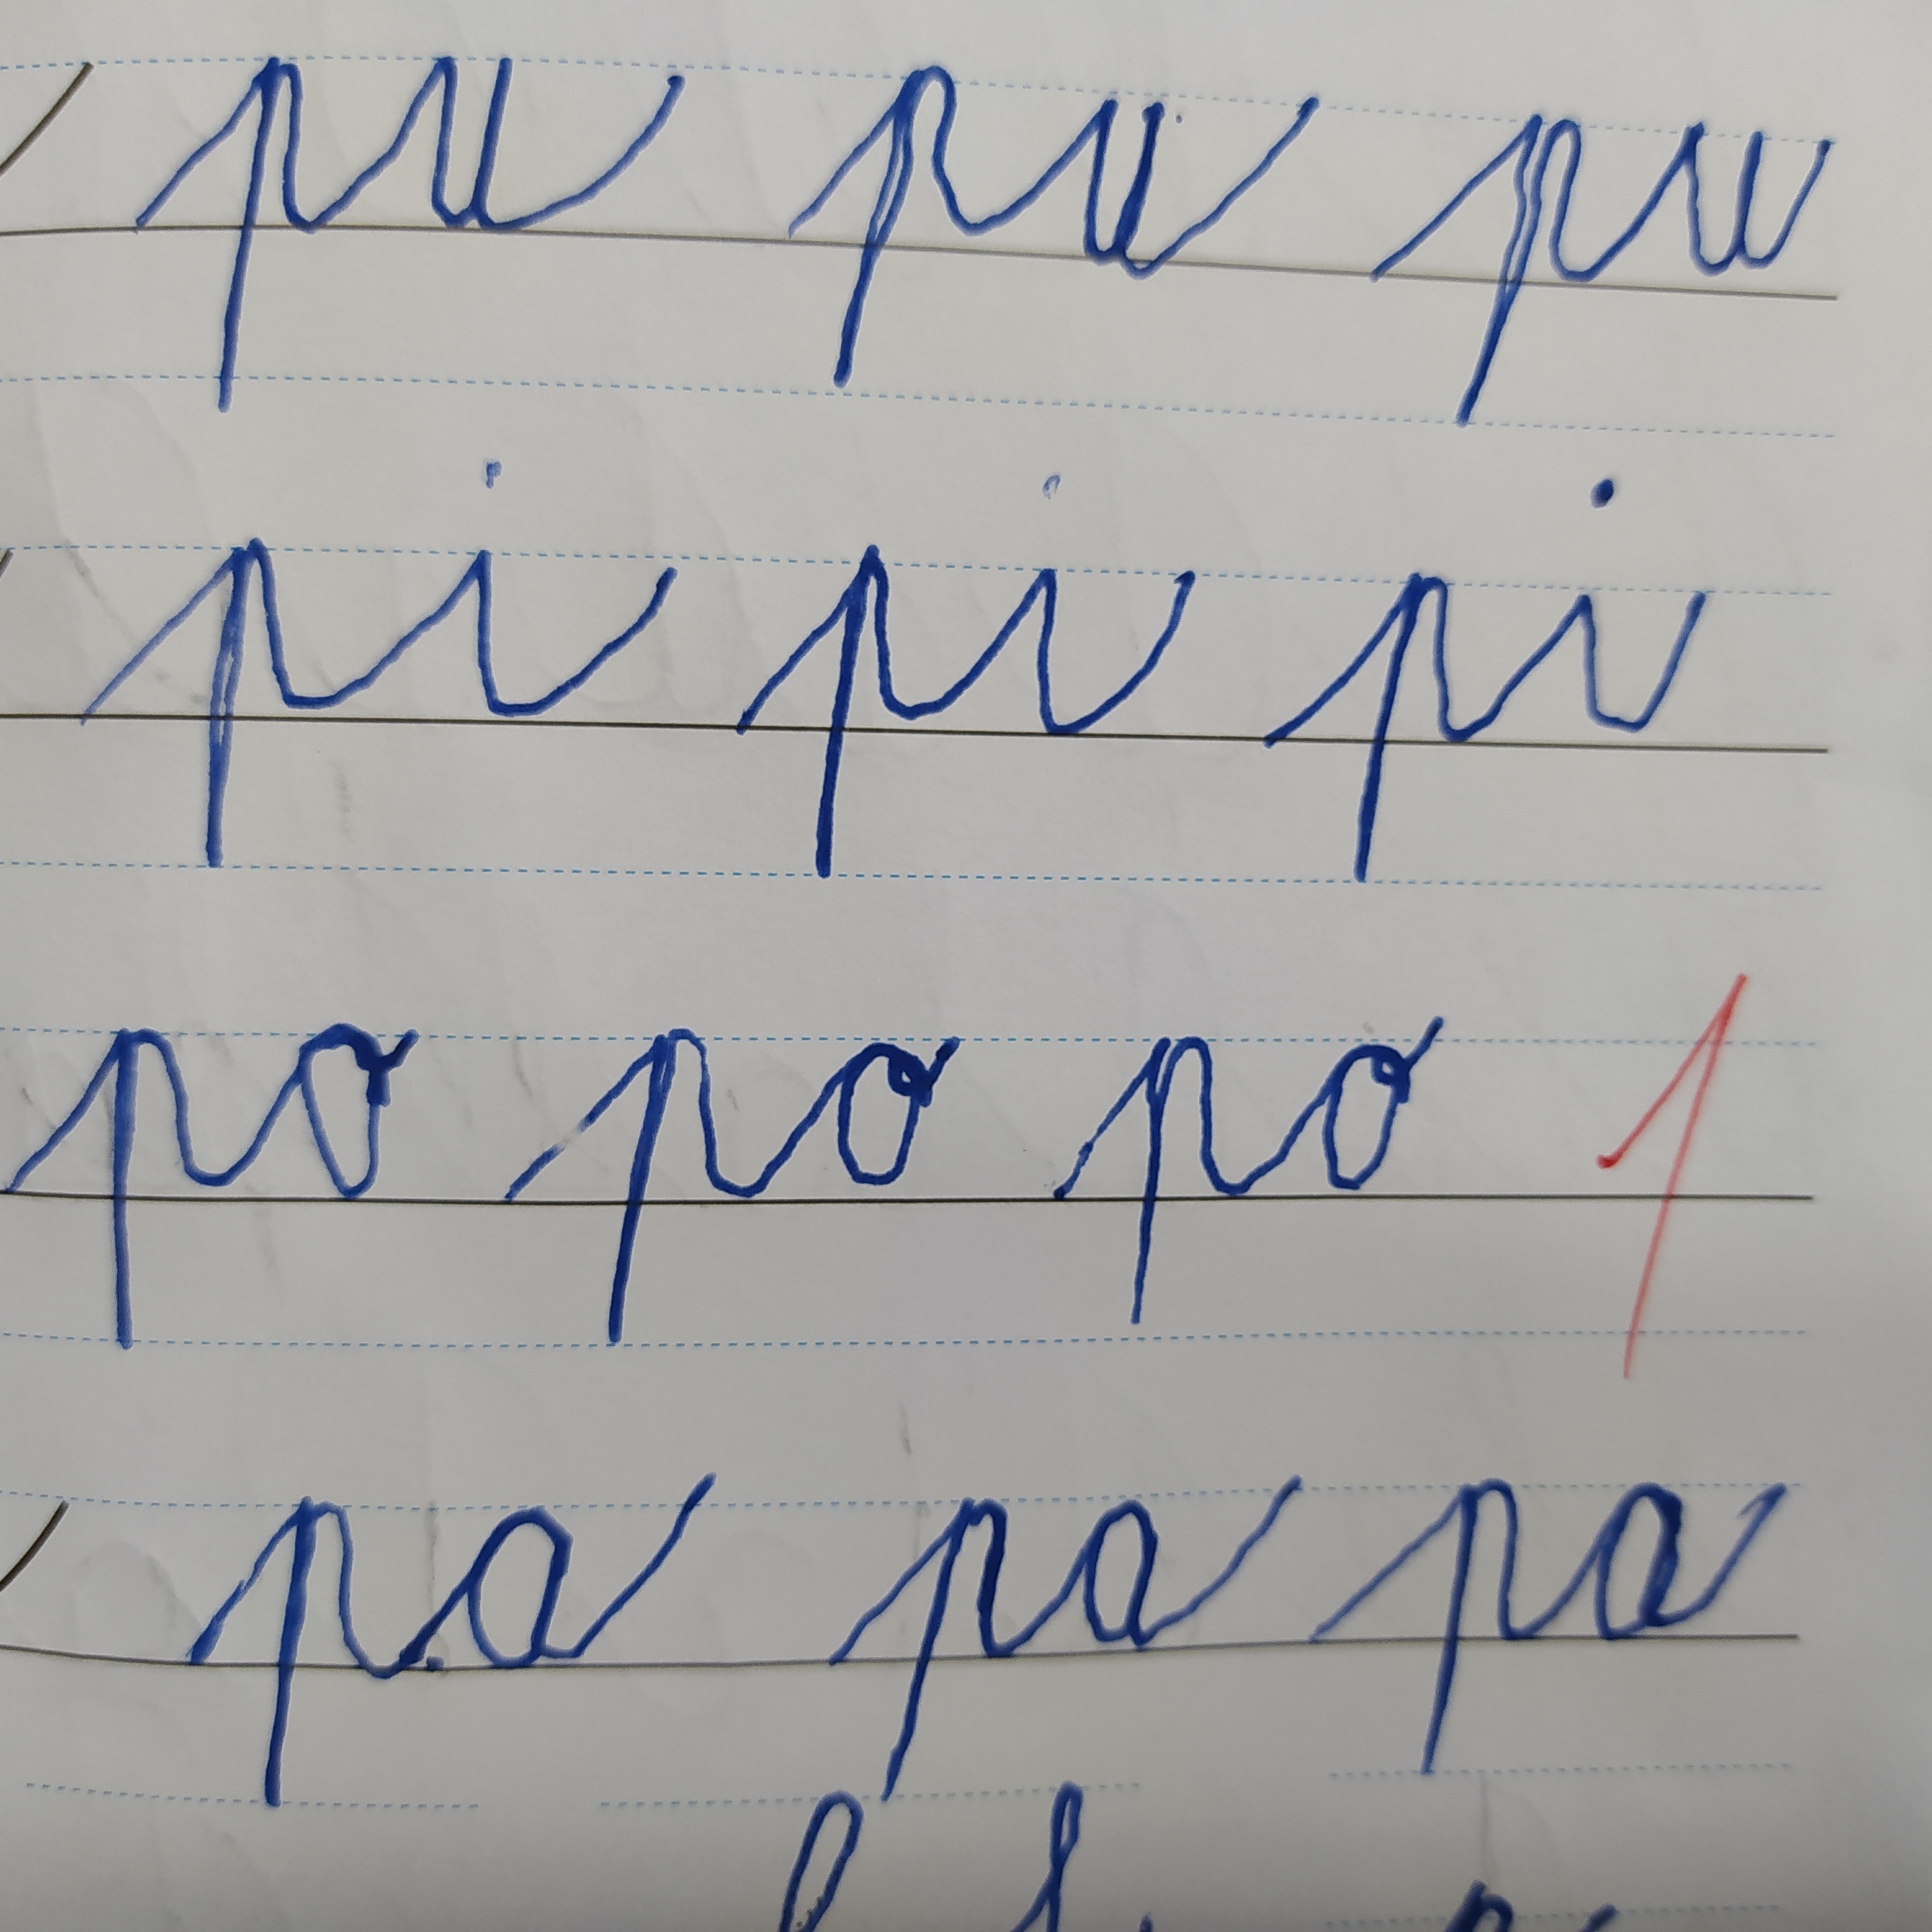 pu pu pu
pi pi pi
po po po 1
pa pa pa